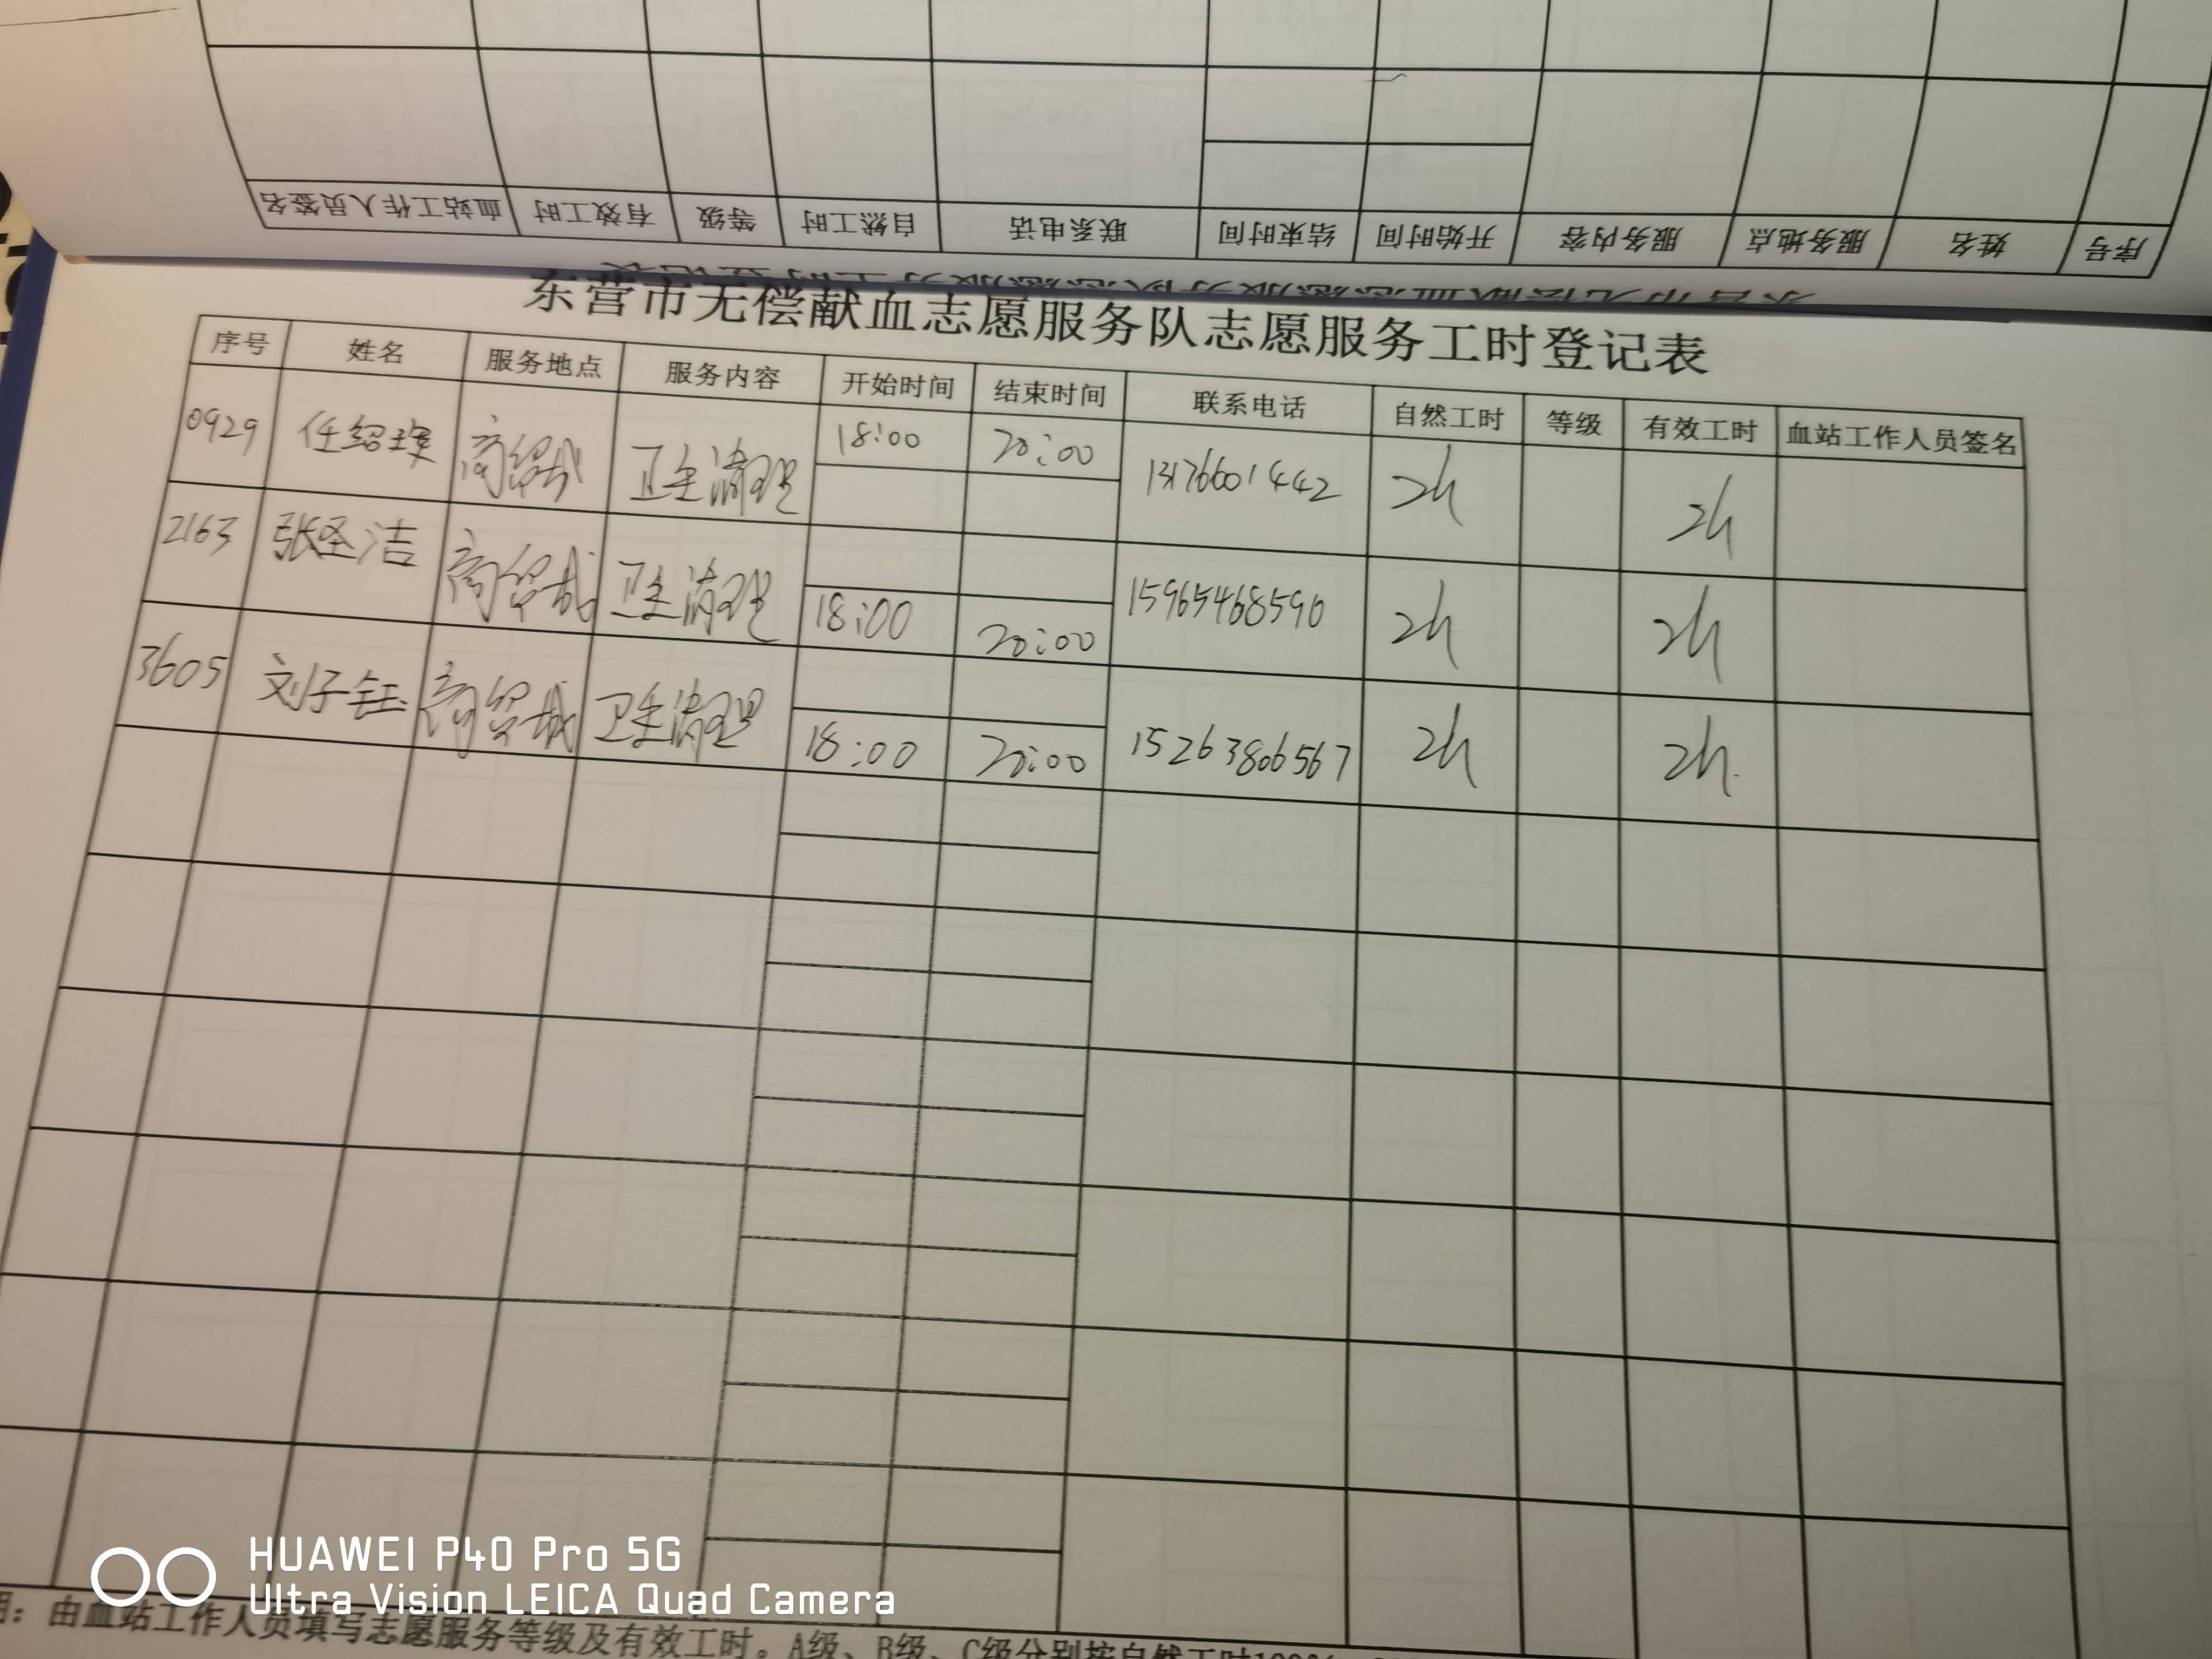 血站工作人员签名 有效工时 等级 自然工时 联系电话 结束时间 开始时间 服务内容 服务地点 姓名 序号
东营市无偿献血志愿服务队志愿服务工时登记表
序号 姓名 服务地点 服务内容 开始时间 结束时间 联系电话 自然工时 等级 有效工时 血站工作人员签名
0929 任绍璞 商贸城 卫生清理 18:00 20:00 13176601442 2h 2h
2163 张圣洁 商贸城 卫生清理 18:00 20:00 15965468590 2h 2h
3605 刘子钰 商贸城 卫生清理 18:00 20:00 15263806567 2h 2h.
HUAWEI P40 Pro 5G
Ultra Vision LEICA Quad Camera
明：由血站工作人员填写志愿服务等级及有效工时。A级、B级、C级分别按自然工时100%